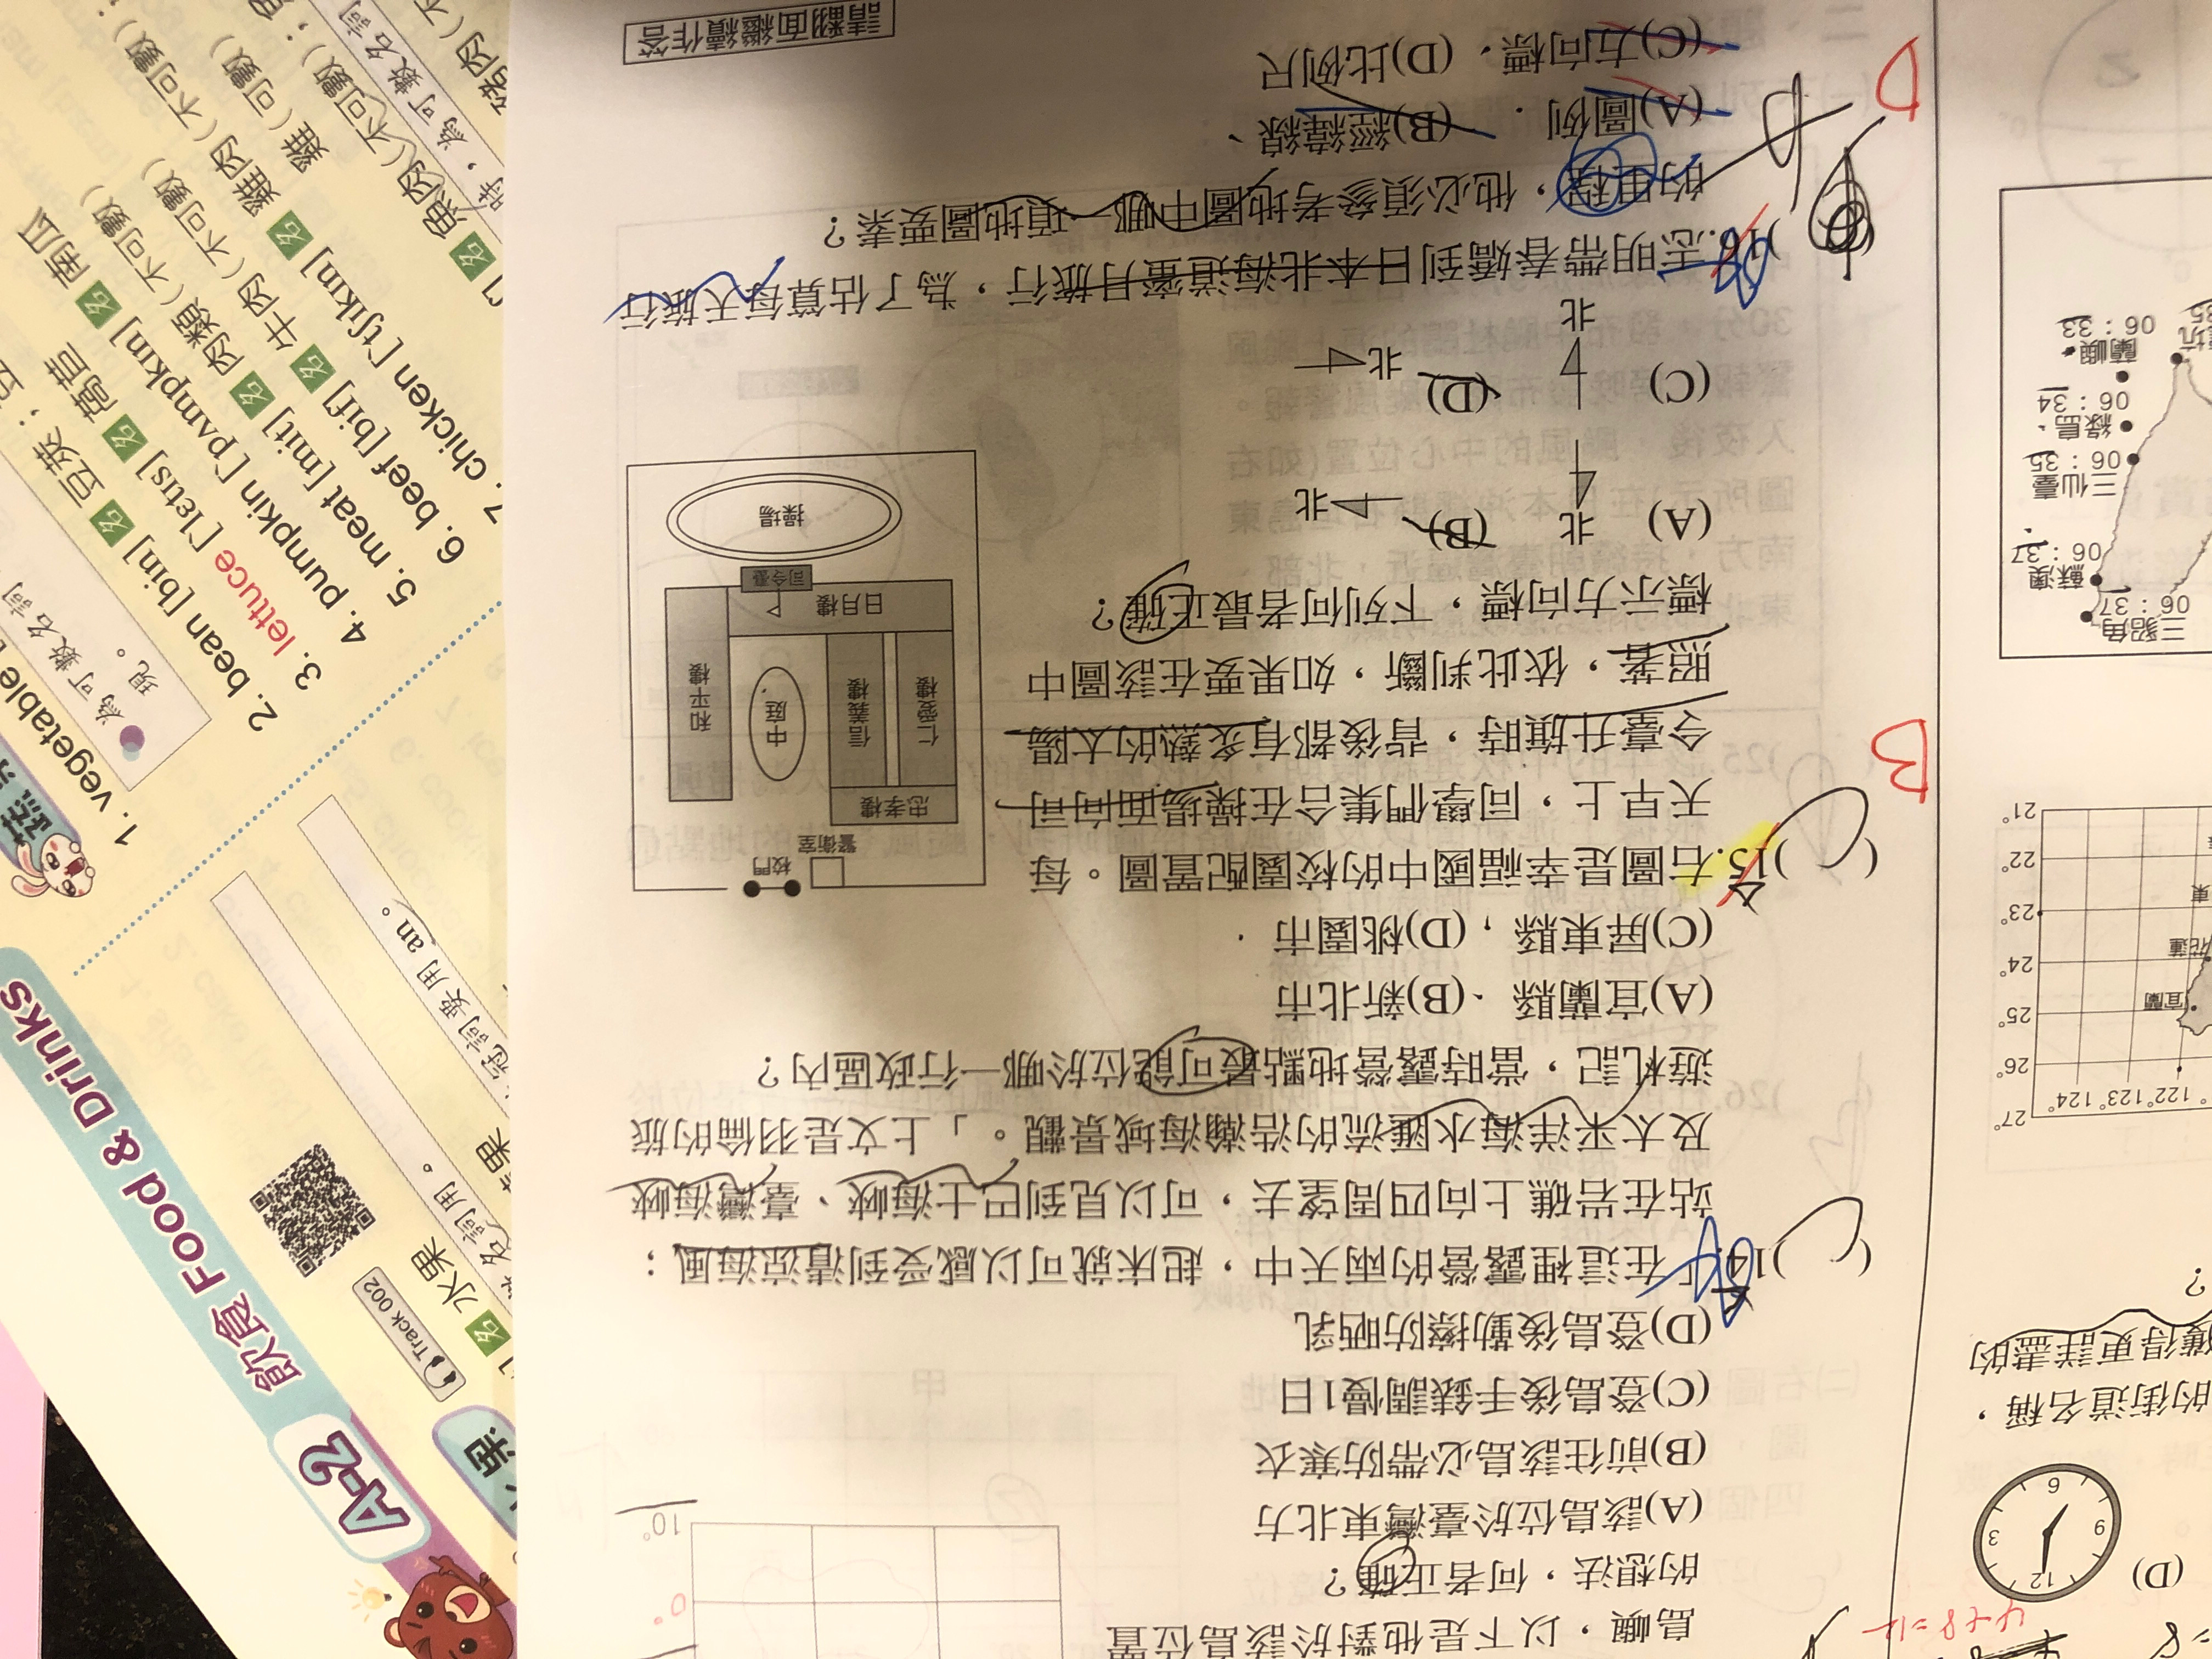 島嶼，以下是他對於該島位置
的想法，何者正確？
(A)該島位於臺灣東北方
(B)前往該島必帶防寒衣
(C)登島後手錶調慢1日
(D)登島後勤擦防晒乳
10°
0°
( )14.「在這裡露營的兩天中，起床就可以感受到清涼海風；
站在岩礁上向四周望去，可以見到巴士海峽、臺灣海峽
及太平洋海水匯流的浩瀚海域景觀。」上文是羽倫的旅
遊札記，當時露營地點最可能位於哪一行政區內？
(A)宜蘭縣 (B)新北市
(C)屏東縣 (D)桃園市
( )15.右圖是幸福國中的校園配置圖。每
天早上，同學們集合在操場面向司
令臺升旗時，背後都有炙熱的太陽
照著，依此判斷，如果要在該圖中
標示方向標，下列何者最正確？
(A) 北 (B) 北
(C) 北 (D) 北
校門
警衛室
忠孝樓
仁愛樓
信義樓
中庭
和平樓
日月樓
司令臺
操場
)16.志明帶春嬌到日本北海道蜜月旅行，為了估算每天旅行
的里程，他必須參考地圖中哪一項地圖要素？
(A)圖例 (B)經緯線
(C)方向標 (D)比例尺
請翻面繼續作答
B
D
(D)
12
3
6
9
的街道名稱，
獲得更詳盡的
？
27°
26°
25°
24°
23°
22°
21°
122°
123°
124°
宜蘭
花蓮
三貂角
06：37
蘇澳
06：37
三仙臺
06：35
綠島
06：34
蘭嶼
06：33
A-2
飲食 Food & Drinks
Track 002
名 水果
an。
1. vegetable
為可數名詞
2. bean [bin] 名 豆莢；
3. lettuce [ˋlɛtɪs] 名 萵苣
4. pumpkin [ˋpʌmpkɪn] 名 南瓜
5. meat [mit] 名 肉類（不可數）
6. beef [bif] 名 牛肉（不可數）
7. chicken [ˋtʃɪkɪn] 名 雞肉（不可數）
雞（可數）
名 魚肉（不可數）；
時，為可數名詞
豬肉（不